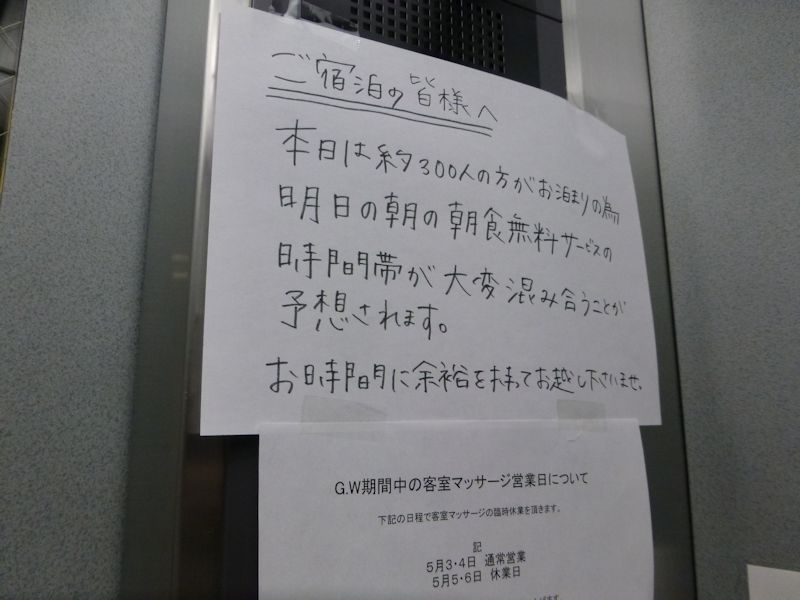 ご宿泊の皆様へ
本日は約300人の方がお泊まりの為
明日の朝の朝食無料サービスの
時間帯が大変混み合うことが
予想されます。
お時間に余裕を持ってお越し下さいませ。
G.W期間中の客室マッサージ営業日について
下記の日程で客室マッサージの臨時休業を頂きます。
記
5月3・4日 通常営業
5月5・6日 休業日